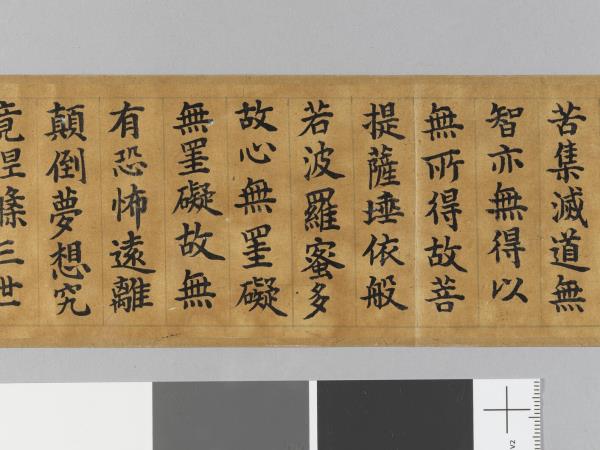 苦集滅道無
智亦無得以
無所得故菩
提薩埵依般
若波羅蜜多
故心無罣礙
無罣礙故無
有恐怖遠離
顛倒夢想究
竟涅槃三世
V2